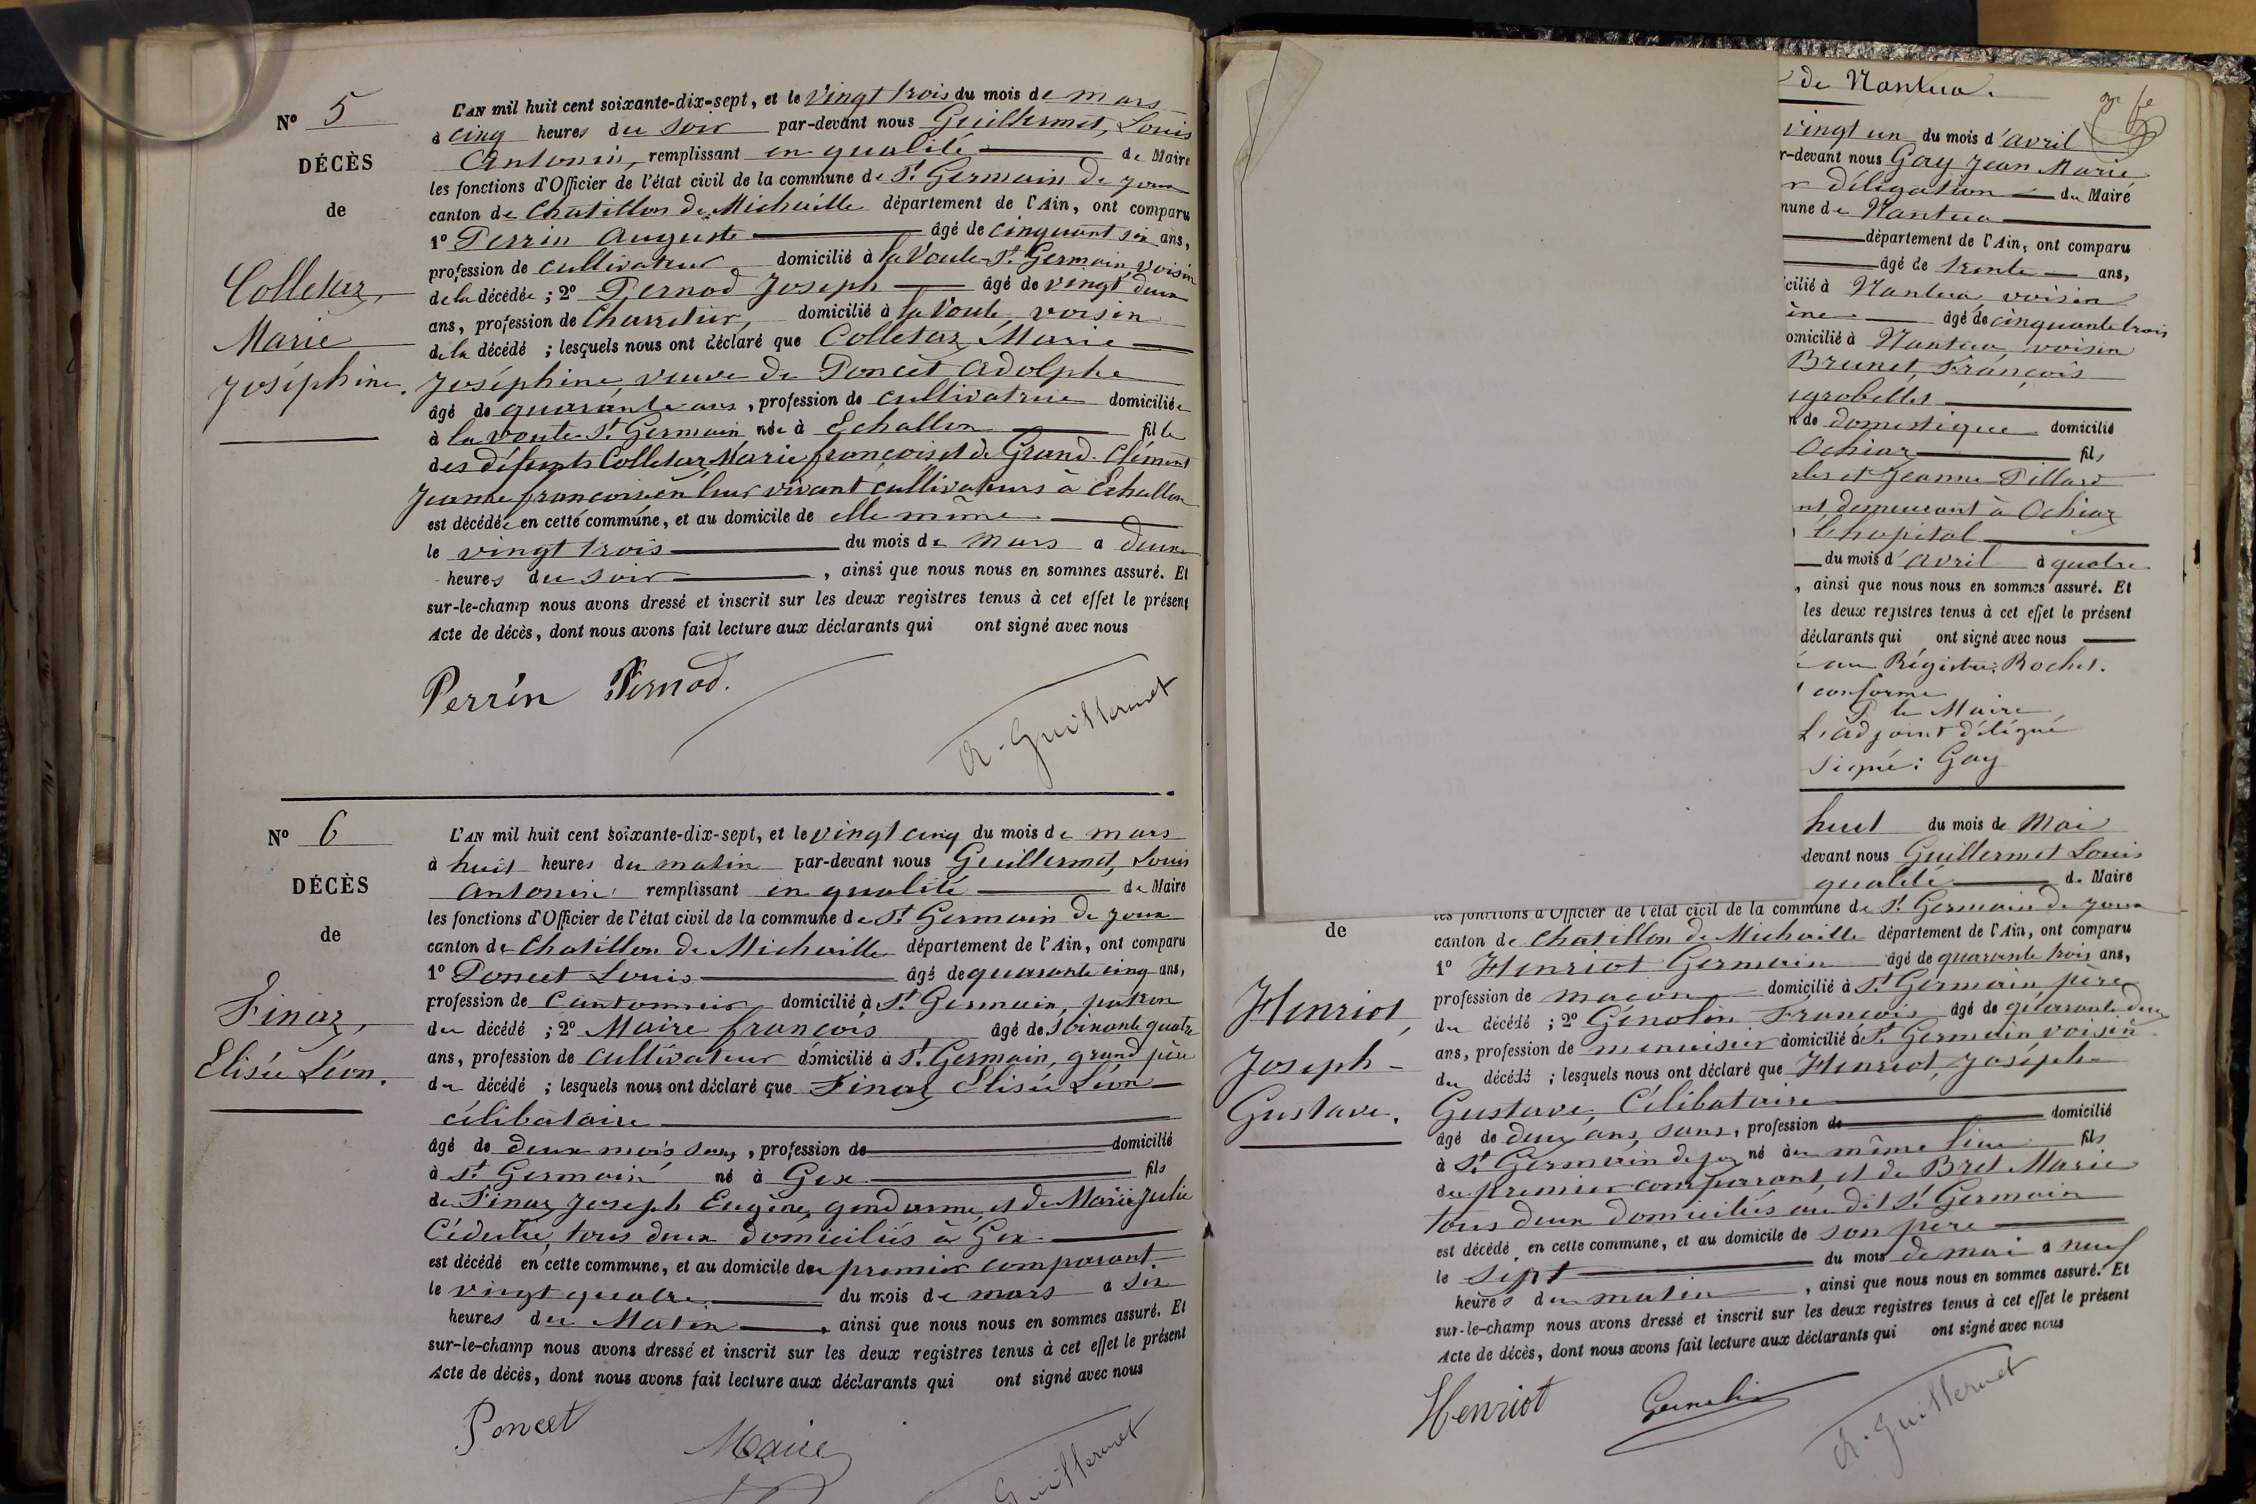 Nº 5
DÉCÈS
de
Colletaz,
Marie
Joséphine.
L'AN mil huit cent soixante-dix-sept, et le vingt trois du mois de mars
à cinq heures du soir par-devant nous Guillermet, Louis
Antonin, remplissant en qualité de Maire
les fonctions d'Officier de l'état civil de la commune de St Germain de Joux
canton de Chatillon de Michaille département de l'Ain, ont comparu
1º Perrin Auguste âgé de cinquant six ans,
profession de cultivateur domicilié à la Voute St Germain, voisin
de la décédée ; 2º Pernod Joseph âgé de vingt deux
ans, profession de Charretier, domicilié à la Voute, voisin
de la décédé ; lesquels nous ont déclaré que Colletaz Marie
Joséphine, veuve de Poncet Adolphe
âgé de quarante ans, profession de cultivatrice domiciliée
à la voute St Germain, née à Echallon fille
des défunts Colletaz Marie françois et de Grand-Clément
Jeanne françoise en leur vivant cultivateurs à Echallon
est décédée en cette commune, et au domicile de elle même
le vingt trois du mois de mars à deux
heures du soir, ainsi que nous nous en sommes assuré. Et
sur-le-champ nous avons dressé et inscrit sur les deux registres tenus à cet effet le présent
Acte de décès, dont nous avons fait lecture aux déclarants qui ont signé avec nous
Perrin Pernod.
A. Guillermet
Nº 6
DÉCÈS
de
Finaz,
Elisée Léon.
L'AN mil huit cent soixante-dix-sept, et le vingt cinq du mois de mars
à huit heures du matin par-devant nous Guillermet, Louis
Antonin remplissant en qualité de Maire
les fonctions d'Officier de l'état civil de la commune de St Germain de Joux
canton de Chatillon de Michaille département de l'Ain, ont comparu
1º Poncet Louis âgé de quarante cinq ans,
profession de Cantonnier, domicilié à St Germain, patron
du décédé ; 2º Maire françois âgé de soixante quatre
ans, profession de cultivateur domicilié à St Germain, grand père
du décédé ; lesquels nous ont déclaré que Finaz Elisée Léon
célibataire
âgé de deux mois sans, profession de domicilié
à St Germain né à Gex fils
de Finaz Joseph Eugène, gendarme, et de Marie Julie
tous deux domiciliés à Gex
est décédé en cette commune, et au domicile du premier comparant
le vingt quatre du mois de mars à six
heures du Matin, ainsi que nous nous en sommes assuré. Et
sur-le-champ nous avons dressé et inscrit sur les deux registres tenus à cet effet le présent
Acte de décès, dont nous avons fait lecture aux déclarants qui ont signé avec nous
Poncet
Maire
Guillermet
de Nantua.
vingt un du mois d'avril
r-devant nous Gay Jean Marie
r délégation du Mairé
mune de Nantua
département de l'Ain, ont comparu
âgé de trente ans,
cilié à Nantua, voisin
âgé de cinquante trois
omicilié à Nantua voisin
Brunet, François
grobellet
n de domestique domicilié
Ochiaz fils
et Jeanne Pillard
nt demeurant à Ochiaz
l'hopital
du mois d'avril à quatre
, ainsi que nous nous en sommes assuré. Et
les deux registres tenus à cet effet le présent
déclarants qui ont signé avec nous
au Régistre: Rochet.
conforme
P. le Maire
L'adjoint délégué
Signé: Gay
huit du mois de Mai
devant nous Guillermet Louis
qualité de Maire
les fonctions d'Officier de l'état civil de la commune de St Germain de Joux
canton de Chatillon de Michaille département de l'Ain, ont comparu
de
Henriot,
Joseph-
Gustave.
1º Henriot Germain âgé de quarante trois ans,
profession de maçon domicilié à St Germain, père
du décédé ; 2º Génolin François âgé de quarante deux
ans, profession de menuisier domicilié à St Germain voisin
du décédé ; lesquels nous ont déclaré que Henriot, Joséph
Gustave, Célibataire
âgé de deux ans, sans, profession de domicilié
à St Germain de Joux né au même lieu fils
du premier comparant, et de Bret Marie
tous deux domiciliés au dit St Germain
est décédé en cette commune, et au domicile de son père
le sept du mois de mai à neuf
heures du matin, ainsi que nous nous en sommes assuré. Et
sur-le-champ nous avons dressé et inscrit sur les deux registres tenus à cet effet le présent
Acte de décès, dont nous avons fait lecture aux déclarants qui ont signé avec nous
Henriot
A. Guillermet